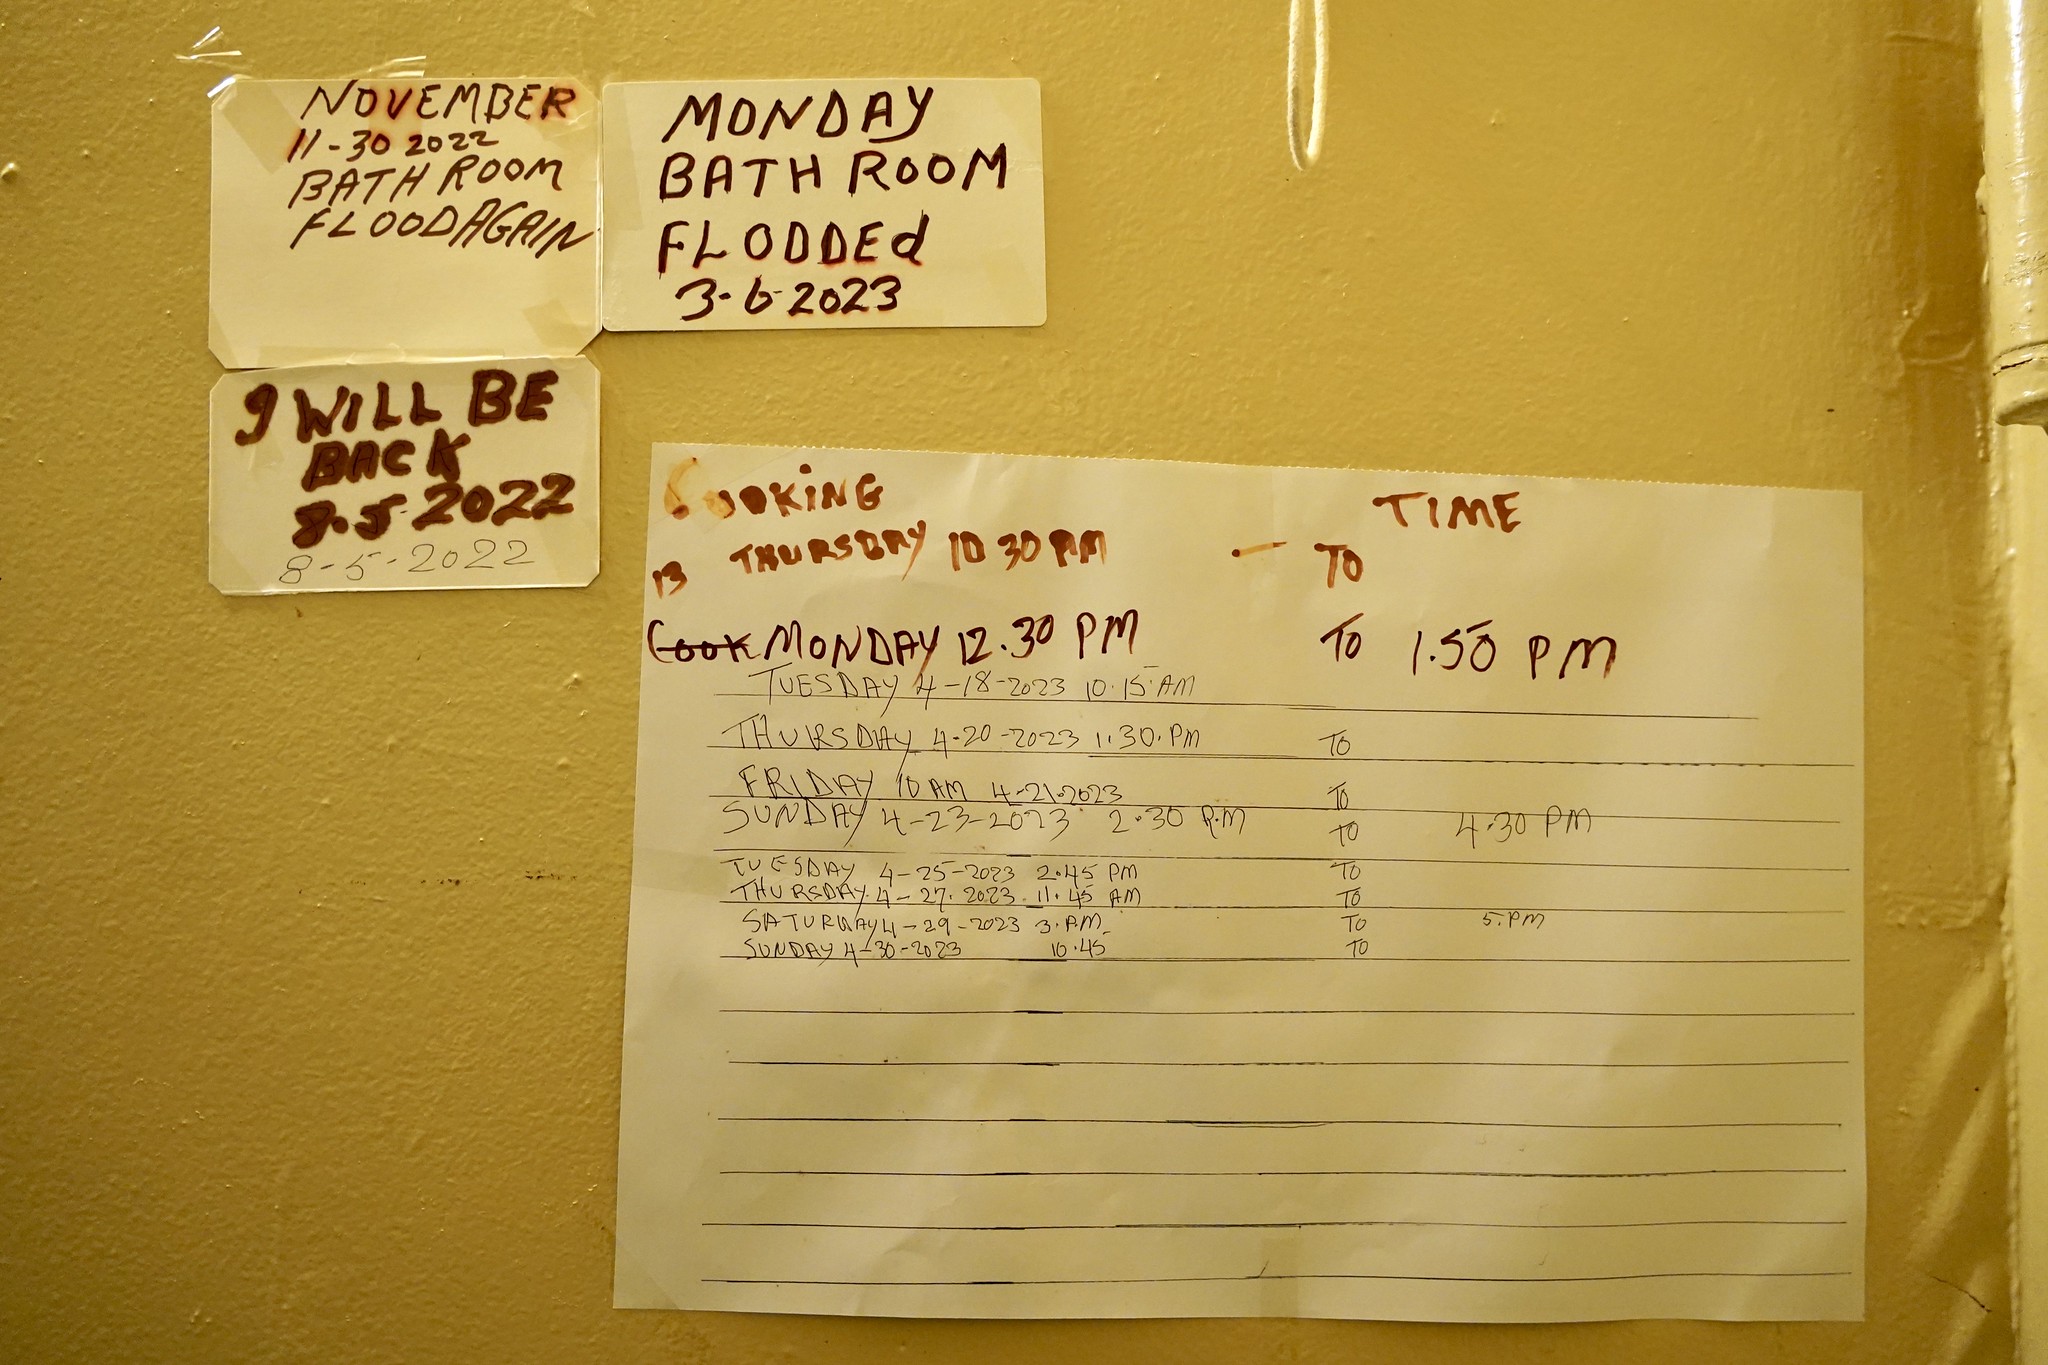 NOVEMBER
11-30 2022
BATH ROOM
FLOOD AGAIN
MONDAY
BATH ROOM
FLODDEd
3-6-2023
I WILL BE
BACK
8.5-2022
8-5-2022
COOKING TIME
13 THURSDAY 10 30 AM - TO
COOK MONDAY 12.30 PM TO 1.50 PM
TUESDAY 4-18-2023 10.15.AM
THURSDAY 4-20-2023 1.30.PM TO
FRIDAY 10 AM 4-21.2023 TO
SUNDAY 4-23-2023 2.30 P.M TO 4.30 PM
TUESDAY 4-25-2023 2.45 PM TO
THURSDAY.4-27.2023. 11.45 AM TO
SATURDAY 4-29-2023 3.PM TO 5.PM
SUNDAY 4-30-2023 10.45 TO